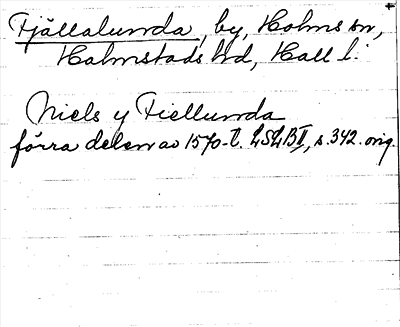 Fjällalunda, by, Holms sn,
Halmstads hd, Hall l.
Niels y Fiellunda
förra delen av 1570-t. LSLB II, s. 342. orig.